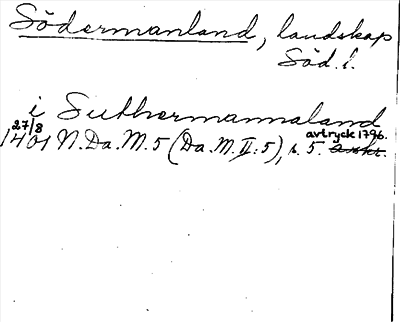 Södermanland, landskap
Söd. l.
i Suthermannaland
27/8 avtryck 1796.
1401 N. Da. M. 5 (Da. M. II: 5), s. 5.